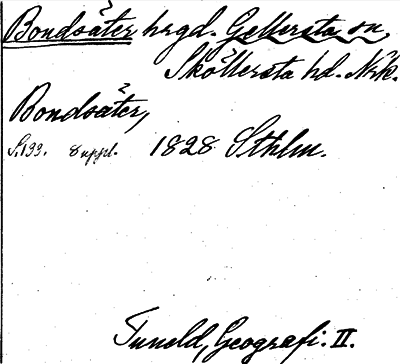 Bondsäter hrgd. Gellersta sn,
Sköllersta hd. Nrk.
Bondsäter,
S. 199. 8 uppl. 1828 Sthlm.
Tuneld, Geografi. II.